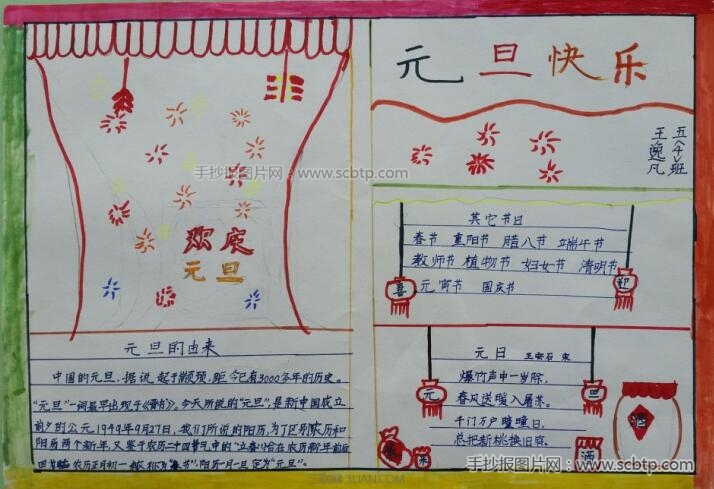 元旦快乐
五(4)班
王逸凡
手抄报图片网 - www.scbtp.com
欢庆
元旦
其它节日
春节 重阳节 腊八节 端午节
教师节 植物节 妇女节 清明节
元宵节 国庆节
喜
迎
元旦的由来
中国的元旦,据说起于颛顼,距今已有3000多年的历史。
"元旦"一词最早出现于《晋书》。今天所说的"元旦",是新中国成立
前夕的公元1949年9月27日,我们所说的阳历,为了区别农历和
阳历两个新年,又鉴于农历二十四节气中的"立春"恰在农历新年前后
农历正月初一 阳历一月一日定为"元旦"。
元日 王安石 宋
爆竹声中一岁除,
春风送暖入屠苏。
千门万户曈曈日,
总把新桃换旧符。
元
旦
酒
手抄报图片网 - www.scbtp.com
3LIAN.COM